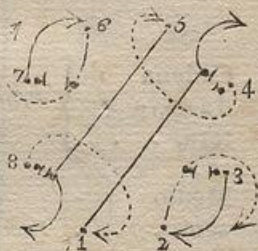 6 5
7 4
8 3
1 2